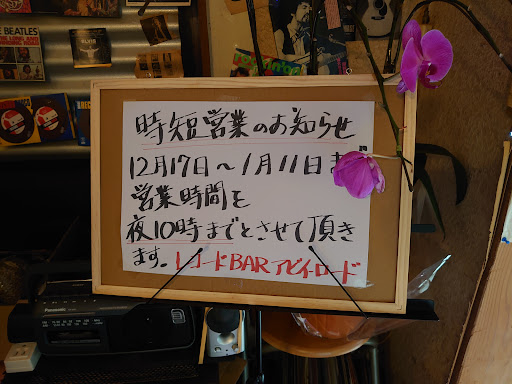 時短営業のお知らせ
12月17日〜1月11日ま
営業時間を
夜10時までとさせて頂き
ます。レコードBARアビイロード
BEATLES
Panasonic